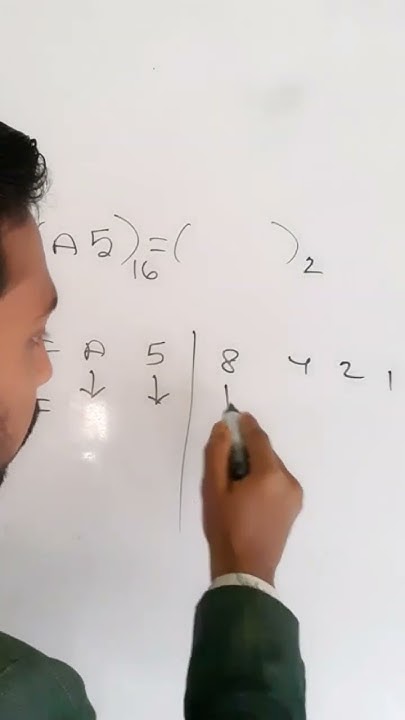 (A5)16=( )2
= A 5 | 8 4 2 1
↓ ↓ 1
=